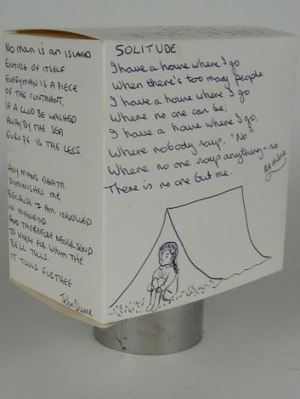 No man is an ISLAND
ENTIRE OF ITSELF
EVERYMAN IS A PIECE
OF THE CONTINENT,
IF A CLOD BE WASHED
AWAY BY THE SEA
EUROPE IS THE LESS
ANY MANS DEATH
DIMINISHES ME
BECAUSE I AM INVOLVED
IN MANKIND.
AND THEREFORE NEVER SEND
TO KNOW FOR WHOM THE
BELL TOLLS.
IT TOLLS FOR THEE
John Donne
SOLITUDE
I have a house where I go
When there's too many people
I have a house where I go
Where no one can be,
I have a house where I go,
Where nobody says, "No
Where no one says anything - so
There is no one but me.
AA Milne